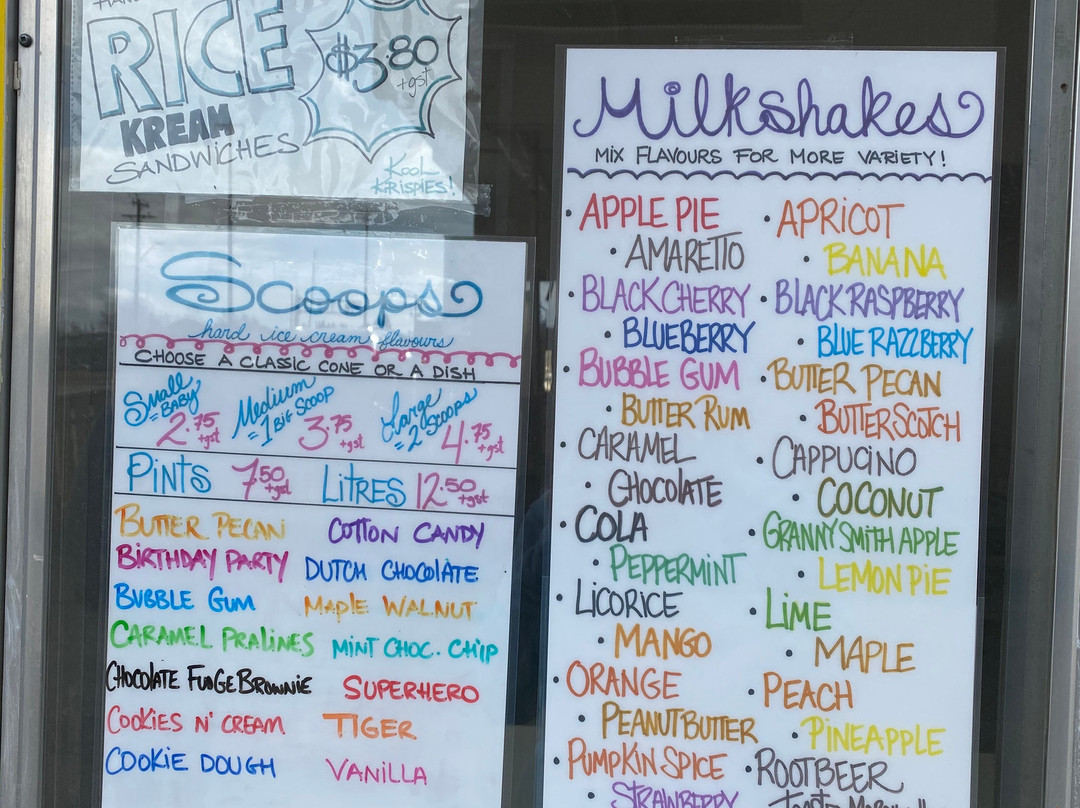 RICE
$3.80
+gst
KREAM
SANDWICHES
KOOL
KRISPIES!
Scoops
hard ice cream flavours
CHOOSE A CLASSIC CONE OR A DISH
Small
= BABY
2.75
+gst
Medium
= 1 BIG SCOOP
3.75
+gst
Large
= 2 Scoops
4.75
+gst
PINTS 7.50 +gst LITRES 12.50 +gst
BUTTER PECAN COTTON CANDY
BIRTHDAY PARTY DUTCH CHOCOLATE
BUBBLE GUM MAPLE WALNUT
CARAMEL PRALINES MINT CHOC. CHIP
CHOCOLATE FUDGE BROWNIE SUPERHERO
COOKIES N' CREAM TIGER
COOKIE DOUGH VANILLA
Milkshakes
MIX FLAVOURS FOR MORE VARIETY!
• APPLE PIE • APRICOT
• AMARETTO • BANANA
• BLACK CHERRY • BLACK RASPBERRY
• BLUEBERRY • BLUE RAZZBERRY
• BUBBLE GUM • BUTTER PECAN
• BUTTER RUM • BUTTERSCOTCH
• CARAMEL • CAPPUCINO
• CHOCOLATE • COCONUT
• COLA • GRANNY SMITH APPLE
• PEPPERMINT • LEMON PIE
• LICORICE • LIME
• MANGO • MAPLE
• ORANGE • PEACH
• PEANUT BUTTER • PINEAPPLE
• PUMPKIN SPICE • ROOTBEER
• STRAWBERRY